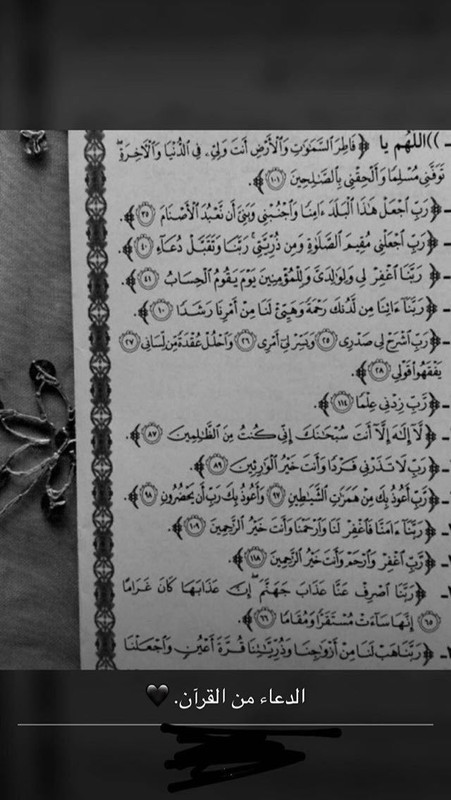 ـ ))اللهم يا ﴿فَاطِرَ ٱلسَّمَٰوَٰتِ وَٱلْأَرْضِ أَنتَ وَلِىِّۦ فِى ٱلدُّنْيَا وَٱلْآخِرَةِ ۖ
تَوَفَّنِى مُسْلِمًا وَأَلْحِقْنِى بِٱلصَّٰلِحِينَ ١٠١﴾.
ـ ﴿رَبِّ ٱجْعَلْ هَٰذَا ٱلْبَلَدَ ءَامِنًا وَٱجْنُبْنِى وَبَنِىَّ أَن نَّعْبُدَ ٱلْأَصْنَامَ ٣٥﴾.
ـ ﴿رَبِّ ٱجْعَلْنِى مُقِيمَ ٱلصَّلَوٰةِ وَمِن ذُرِّيَّتِى ۚ رَبَّنَا وَتَقَبَّلْ دُعَآءِ ٤٠﴾.
ـ ﴿رَبَّنَا ٱغْفِرْ لِى وَلِوَٰلِدَىَّ وَلِلْمُؤْمِنِينَ يَوْمَ يَقُومُ ٱلْحِسَابُ ٤١﴾.
ـ ﴿رَبَّنَآ ءَاتِنَا مِن لَّدُنكَ رَحْمَةً وَهَيِّئْ لَنَا مِنْ أَمْرِنَا رَشَدًا ١٠﴾.
ـ ﴿رَبِّ ٱشْرَحْ لِى صَدْرِى ٢٥ وَيَسِّرْ لِىٓ أَمْرِى ٢٦ وَٱحْلُلْ عُقْدَةً مِّن لِّسَانِى ٢٧
يَفْقَهُوا۟ قَوْلِى ٢٨﴾.
ـ ﴿رَّبِّ زِدْنِى عِلْمًا ١١٤﴾.
ـ ﴿لَّآ إِلَٰهَ إِلَّآ أَنتَ سُبْحَٰنَكَ إِنِّى كُنتُ مِنَ ٱلظَّٰلِمِينَ ٨٧﴾.
ـ ﴿رَبِّ لَا تَذَرْنِى فَرْدًا وَأَنتَ خَيْرُ ٱلْوَٰرِثِينَ ٨٩﴾.
ـ ﴿رَّبِّ أَعُوذُ بِكَ مِنْ هَمَزَٰتِ ٱلشَّيَٰطِينِ ٩٧ وَأَعُوذُ بِكَ رَبِّ أَن يَحْضُرُونِ ٩٨﴾.
ـ ﴿رَبَّنَآ ءَامَنَّا فَٱغْفِرْ لَنَا وَٱرْحَمْنَا وَأَنتَ خَيْرُ ٱلرَّٰحِمِينَ ١٠٩﴾.
ـ ﴿رَّبِّ ٱغْفِرْ وَٱرْحَمْ وَأَنتَ خَيْرُ ٱلرَّٰحِمِينَ ١١٨﴾.
ـ ﴿رَبَّنَا ٱصْرِفْ عَنَّا عَذَابَ جَهَنَّمَ ۖ إِنَّ عَذَابَهَا كَانَ غَرَامًا
٦٥ إِنَّهَا سَآءَتْ مُسْتَقَرًّا وَمُقَامًا ٦٦﴾.
ـ ﴿رَبَّنَا هَبْ لَنَا مِنْ أَزْوَٰجِنَا وَذُرِّيَّٰتِنَا قُرَّةَ أَعْيُنٍ وَٱجْعَلْنَا
الدعاء من القرآن. 🖤